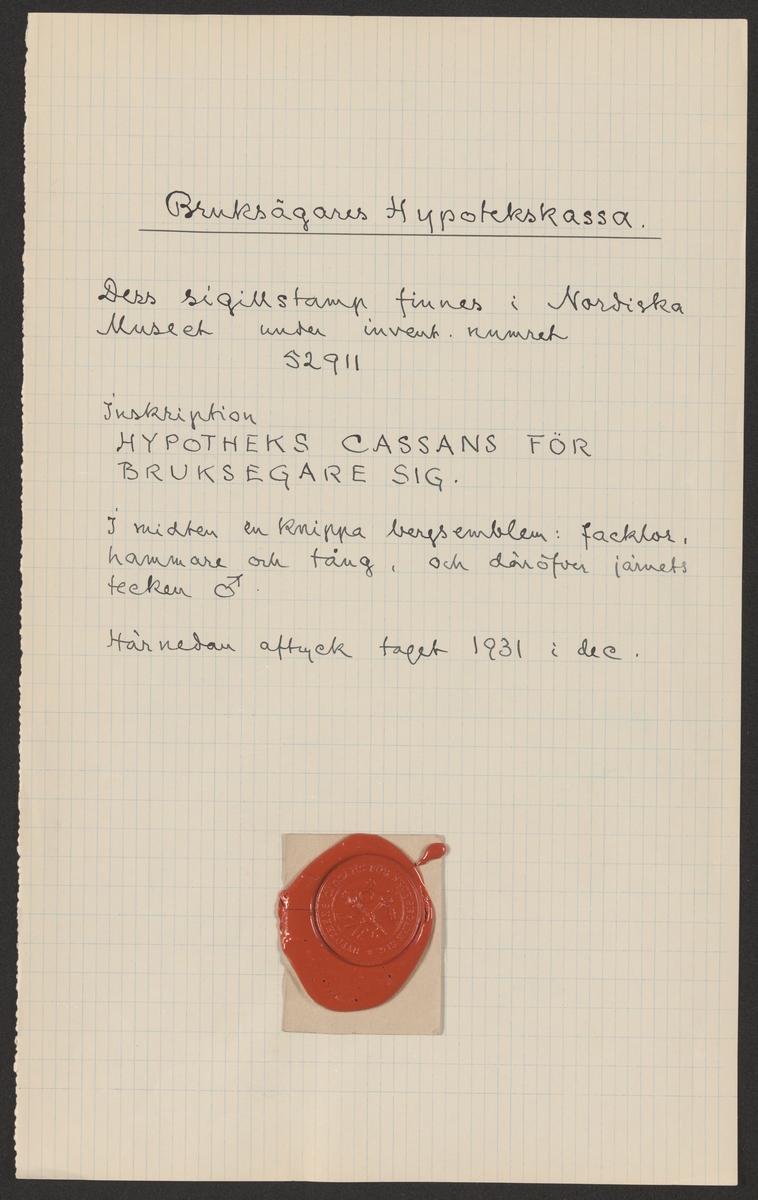 Bruksägares Hypotekskassa.
Dess sigillstamp finnes i Nordiska
Museet under invent. numret
52911
Inskription
HYPOTHEKS CASSANS FÖR
BRUKSEGARE SIG.
I midten en knippa bergsemblem: facklor,
hammare och tång, och däröfver järnets
tecken ♂.
Här nedan aftryck taget 1931 i dec.
HYPOTHEKS CASSANS FÖR BRUKSEGARE SIG.